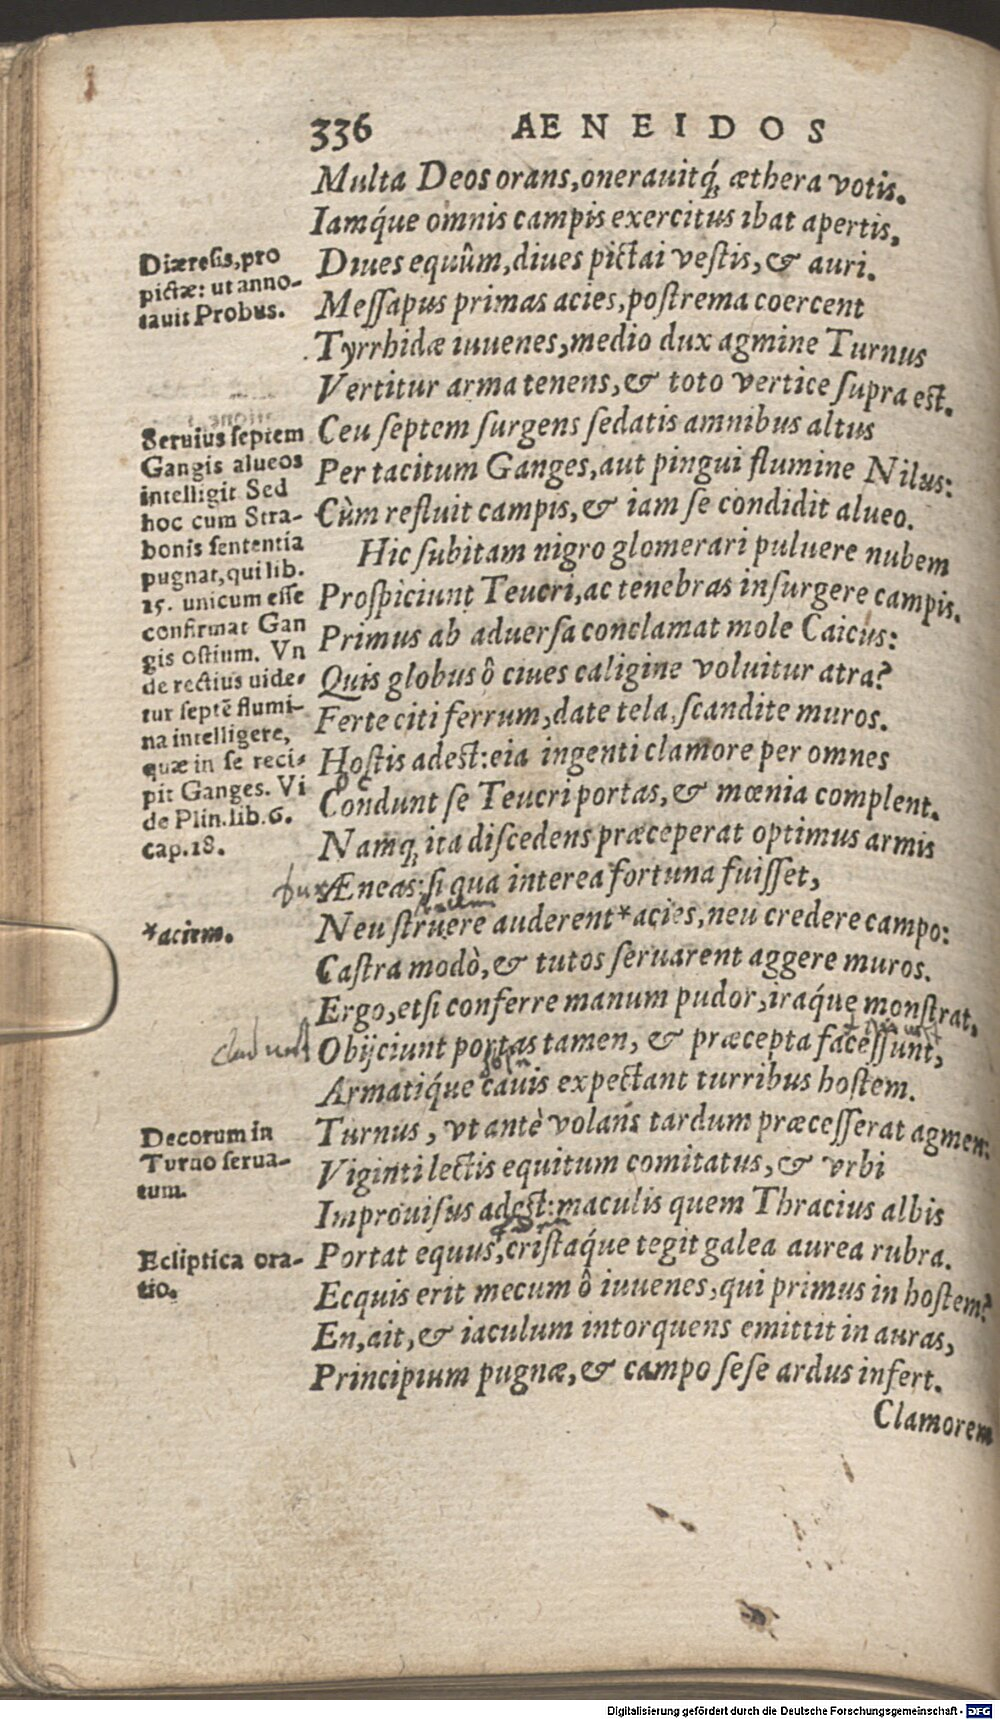 336 AENEIDOS
Multa Deos orans, onerauitq́; æthera votis.
Iamq́ue omnis campis exercitus ibat apertis,
Diues equûm, diues pictai vestis, & auri.
Messapus primas acies, postrema coercent
Tyrrhidæ iuuenes, medio dux agmine Turnus
Vertitur arma tenens, & toto vertice supra est.
Ceu septem surgens sedatis amnibus altus
Per tacitum Ganges, aut pingui flumine Nilus:
Cùm refluit campis, & iam se condidit alueo.
Hic subitam nigro glomerari puluere nubem
Prospiciunt Teucri, ac tenebras insurgere campis.
Primus ab aduersa conclamat mole Caicus:
Quis globus ô ciues caligine voluitur atra?
Ferte citi ferrum, date tela, scandite muros.
Hostis adest: eia ingenti clamore per omnes
Condunt se Teucri portas, & mœnia complent.
Namq; ita discedens præceperat optimus armis
Æneas: si qua interea fortuna fuisset,
Neu struere auderent *acies, neu credere campo:
Castra modò, & tutos seruarent aggere muros.
Ergo, etsi conferre manum pudor, iraq́ue monstrat,
Obijciunt portas tamen, & præcepta facessunt,
Armatiq́ue cauis expectant turribus hostem.
Turnus, vt antè volans tardum præcesserat agmen:
Viginti lectis equitum comitatus, & vrbi
Improuisus adest: maculis quem Thracius albis
Portat equus, cristaq́ue tegit galea aurea rubra.
Ecquis erit mecum ô iuuenes, qui primus in hostem?
En, ait, & iaculum intorquens emittit in auras,
Principium pugnæ, & campo sese ardus infert.
Clamorem
Diæresis, pro
pictæ: ut anno-
tauit Probus.
Seruius septem
Gangis alueos
intelligit Sed
hoc cum Stra-
bonis sententia
pugnat, qui lib.
15. unicum esse
confirmat Gan
gis ostium. Vn
de rectius uide-
tur septē flumi-
na intelligere,
quæ in se reci-
pit Ganges. Vi
de Plin. lib. 6.
cap. 18.
*aciem.
Decorum in
Turno serua-
tum.
Ecliptica ora-
tio.
Digitalisierung gefördert durch die Deutsche Forschungsgemeinschaft - DFG